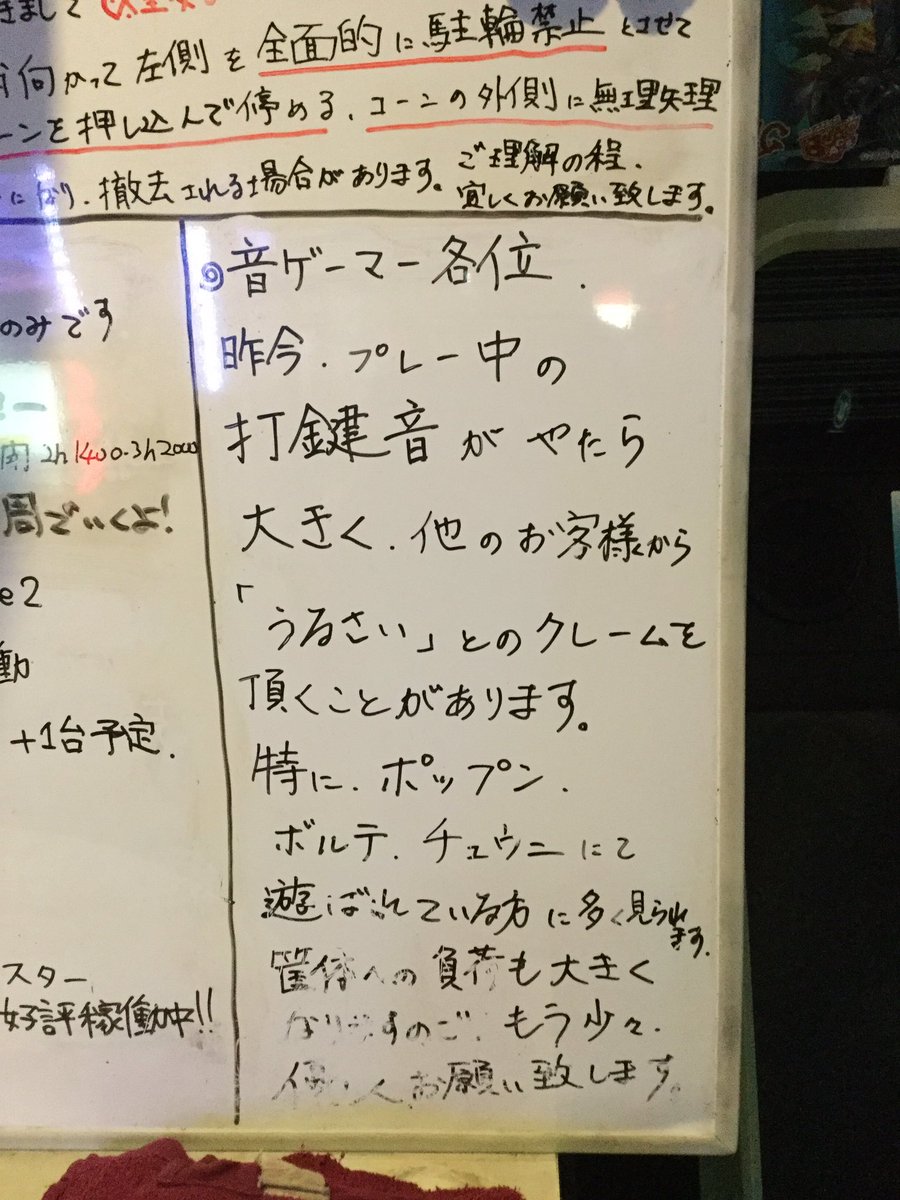 きまして
向かって左側を全面的に駐輪禁止とさせて
ーンを押し込んで停める、コーンの外側に無理矢理
になり、撤去される場合があります。ご理解の程、
宜しくお願い致します。
のみです
2h1400.3h2000
周でいくよ!
e2
動
+1台予定.
スター
好評稼働中!!
◎音ゲーマー各位.
昨今、プレー中の
打鍵音がやたら
大きく、他のお客様から
「うるさい」とのクレームを
頂くことがあります。
特に、ポップン、
ボルテ、チュウニにて
遊ばれている方に多く見られ
ます.
筐体への負荷も大きく
なりますので、もう少々、
優しくお願い致します。